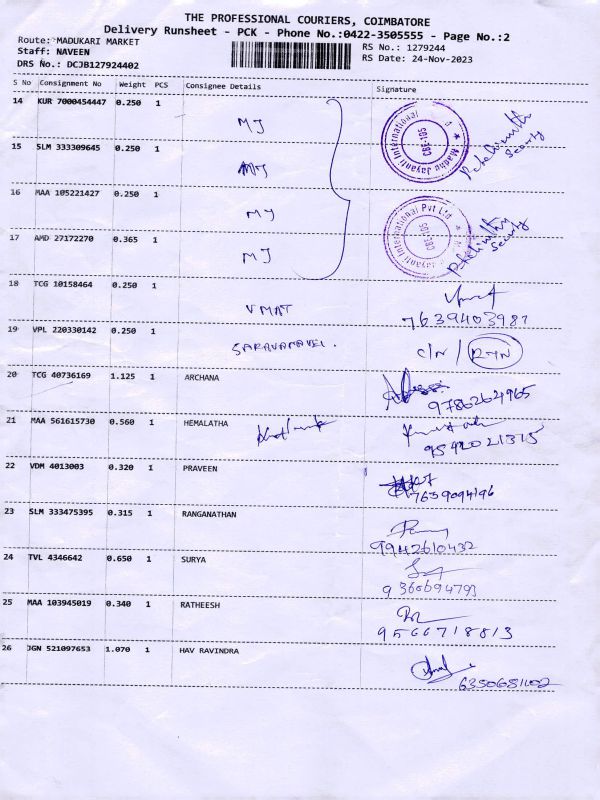 THE PROFESSIONAL COURIERS, COIMBATORE
Delivery Runsheet - PCK - Phone No.:0422-3505555 - Page No.:2
Route: MADUKARI MARKET
Staff: NAVEEN
DRS No.: DCJB127924402
RS No.: 1279244
RS Date: 24-Nov-2023
S No Consignment No Weight PCS Consignee Details Signature
14 KUR 7000454447 0.250 1 MJ
Madhu Jayanti International CBE-105
Security
15 SLM 333309645 0.250 1 MJ
16 MAA 105221427 0.250 1 MJ
Jayanti International Pvt Ltd CBE 105
Security
17 AMD 27172270 0.365 1 MJ
18 TCG 10158464 0.250 1 VMAT
7639403987
19 VPL 220330142 0.250 1 SARAVANAVEL. C/N / RTN
20 TCG 40736169 1.125 1 ARCHANA
9786264965
21 MAA 561615730 0.560 1 HEMALATHA
22 VDM 4013003 0.320 1 PRAVEEN
7639094196
23 SLM 333475395 0.315 1 RANGANATHAN
9942610432
24 TVL 4346642 0.650 1 SURYA
9360694793
25 MAA 103945019 0.340 1 RATHEESH
9566718813
26 JGN 521097653 1.070 1 HAV RAVINDRA